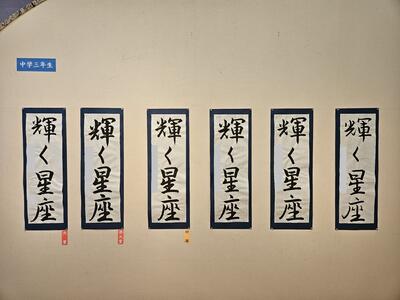 中学三年生
輝く星座
輝く星座
輝く星座
輝く星座
輝く星座
輝く星座